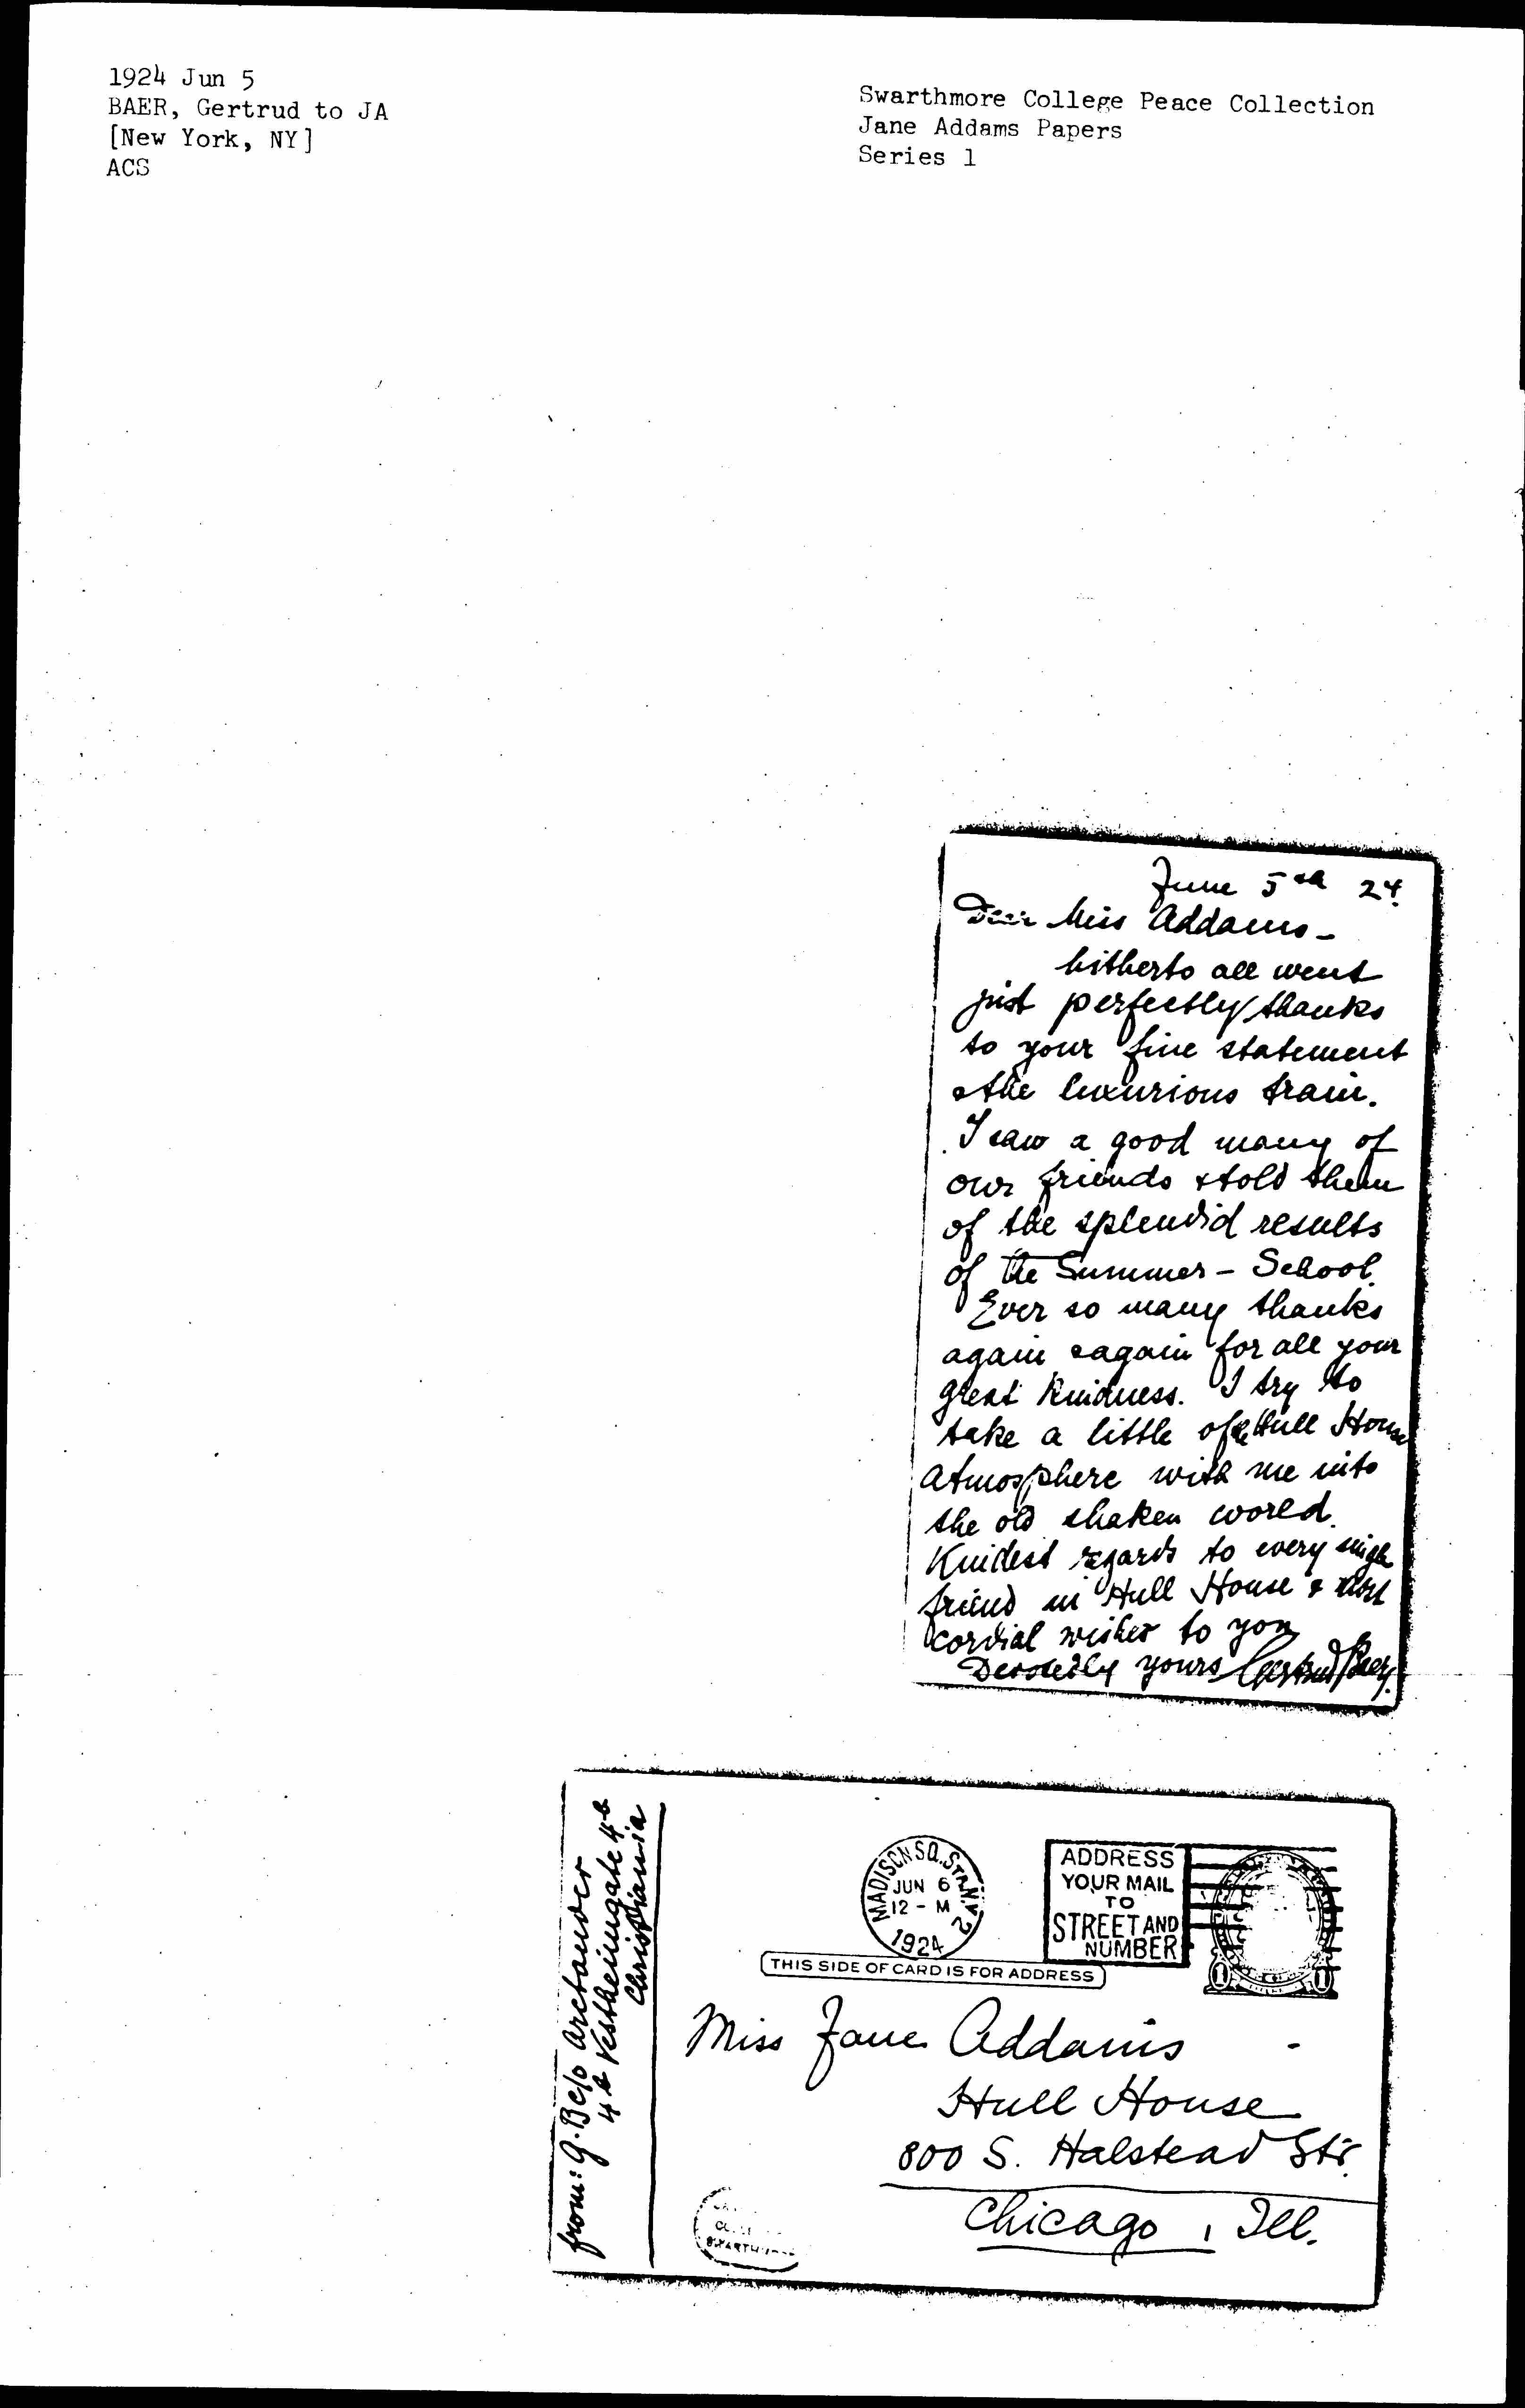 1924 Jun 5
BAER, Gertrud to JA
[New York, NY]
ACS
Swarthmore College Peace Collection
Jane Addams Papers
Series 1
June 5th 24.
Dear Miss Addams –
hitherto all went
just perfectly thanks
to your fine statement
& the luxurious train.
I saw a good many of
our friends & told them
of the splendid results
of the Summer - School.
Ever so many thanks
again & again for all your
great kindness. I try to
take a little of the Hull House
atmosphere with me into
the old shaken world.
Kindest regards to every single
friend in Hull House & most
cordial wishes to you
Devotedly yours Gertrud Baer.
from: G. B c/o Arctander
4b Vestheimgate 4b
Christiania
MADISON SQ. STA. N.Y. 2
JUN 6
12 - M
1924
ADDRESS
YOUR MAIL
TO
STREET AND
NUMBER
1 1
THIS SIDE OF CARD IS FOR ADDRESS
Miss Jane Addams
Hull House
800 S. Halstead Str.
Chicago, Ill.